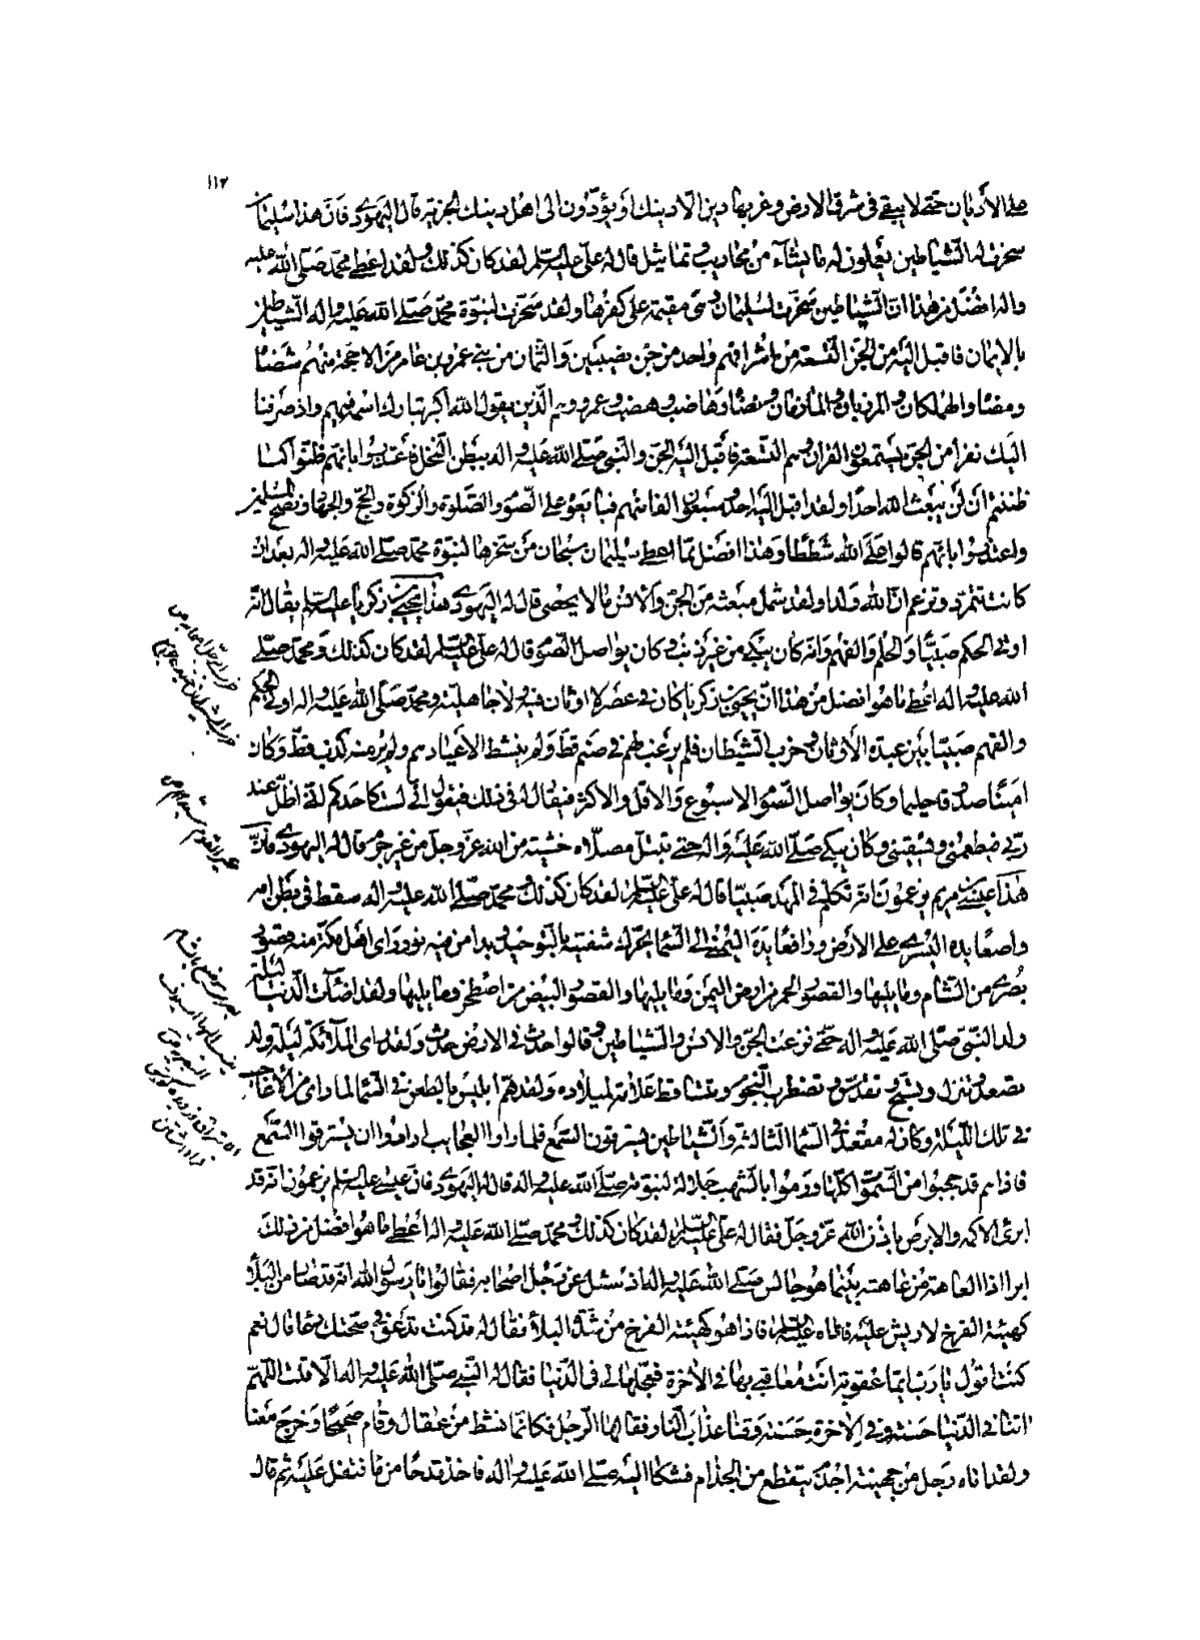 ١١٢
على الأديان حتى لا يبقى فى شرق الارض و غربها دين الا دينك أو يؤدّون الى اهل دينك الجزية قال اليهودى فانّ هذا سليمان
سخرت له الشياطين يعملون له ما يشاء من محاريب و تماثيل قال له على عليه السّلم لقد كان كذلك و لقد اعطى محمّد صلّى الله عليه
واله افضل من هذا انّ الشياطين سخّرت لسليمان و هى مقيمة على كفرها و لقد سخّرت لنبوّة محمّد صلّى الله عليه واله الشياطين
بالايمان فاقبل اليه من الجنّ التّسعة من اشرافهم واحد من جن نصيبين و الثّمان من بنى عمرو بن عامر من الاحجة منهم شضاه
ومضاه و الهملكان و المرزبان و المازمان و نضاه و هاضب و هضب و عمرو و هم الّذين يقول الله تبارك اسمه فيهم و اذ صرفنا
اليك نفرا من الجنّ يستمعون القران و هم التّسعة فأقبل اليه الجنّ و النّبى صلّى الله عليه واله ببطن النّخل فاعتذروا بانهم ظنّوا كما
ظننتم أن لن يبعث الله احدا و لقد اقبل اليه احد و سبعون الفا منهم فبايعوه على الصّوم و الصّلوة و الزكوة و الحجّ و الجهاد و نصح المسلمين
واعتذروا بانّهم قالوا على الله شططا و هذا افضل ممّا اعطى سليمان سبحان من سخّرها لنبوّة محمّد صلّى الله عليه واله بعد ان
كانت تتمرّد و تزعم انّ لله ولدا و لقد شمل مبعثه من الجنّ و الانس ما لا يحصى قال له اليهودى هذا يحيى بن زكريّا عليه السّلم يقال انّه
اوتى الحكم صبيّا و الحلم و الفهم و انّه كان يبكى من غير ذنب و كان يواصل الصّوم قال له على عليه السّلم لقد كان كذلك و محمّد صلّى
الله عليه واله اعطى ما هو افضل من هذا انّ يحيى بن زكريا كان فى عصر لا اوثان فيه و لا جاهليّة و محمّد صلّى الله عليه واله اوتى الحكم
و الفهم صبيّا بين عبدة الأوثان و حزب الشيطان فلم يرغب لهم فى صنم قطّ و لم ينشط لاعيادهم و لم ير منه كذب قطّ و كان
امينا صدوقا حليما و كان يواصل الصّوم الاسبوع و الاقل و الاكثر فيقال له فى ذلك فيقول انّى لست كاحدكم انّى اظلّ عند
ربّى فيطعمنى و يسقينى و كان يبكى صلّى الله عليه و اله حتى تبتل مصلّاه خشية من الله عزّ و جلّ من غير جرم قال له اليهودى فانّ
هذا عيسى بن مريم يزعمون انّه تكلّم فى المهد صبيّا قال له على عليه السّلم لقد كان كذلك و محمّد صلّى الله عليه واله سقط من بطن امه
واضعا يده اليسرى على الأرض و رافعا يده اليمنى الى السّماء يحرّك شفتيه بالتّوحيد و بدا من فيه نور رأى اهل مكّة منه قصور
بصرى من الشّام و ما يليها و القصور الحمر من ارض اليمن و ما يليها و القصور البيض من اصطخر و ما يليها و لقد اضاءت الدّنيا ليلة
ولد النّبى صلّى الله عليه واله حتّى فزعت الجنّ و الانس و الشياطين و قالوا حدث فى الارض حدث و لقد رأى الملائكة ليلة ولد
تصعد و تنزل و تسبّح و تقدّس و تضطرب النّجوم و تتساقط علامة لميلاده و لقد همّ ابليس بالظعن فى السّماء لما رأى من الأعاجيب
فى تلك اللّيلة و كان له مقعد فى السّماء الثالثة و الشياطين يسترقون السّمع فلما رأوا العجايب ارادوا ان يسترقوا السّمع
فاذا هم قد حجبوا من السّموات كلّها و رموا بالشّهب جلالة لنبوّته صلّى الله عليه واله قال له اليهودى فانّ عيسى عليه السّلم يزعمون انّه قد
ابرئ الاكمه و الابرص باذن الله عزّ و جلّ فقال له على عليه السّلم لقد كان كذلك و محمّد صلّى الله عليه واله اعطى ما هو افضل من ذلك
ابرا ذا العاهة من عاهته بينما هو جالس صلّى الله عليه واله اذ سئل عن رجل من اصحابه فقالوا يا رسول الله انّه قد صار من البلاء
كهيئة الفرخ لا ريش عليه فاتاه عليه السّلم فاذا هو كهيئة الفرخ من شدّة البلاء فقال له قد كنت تدعو فى صحّتك دعاء قال نعم
كنت اقول يا ربّ ايّما عقوبة انت معاقبى بها فى الاخرة فعجّلها لى فى الدّنيا فقال له النّبى صلّى الله عليه واله الا قلت اللّهمّ
اتنا فى الدّنيا حسنة و فى الاخرة حسنة و قنا عذاب النار فقالها الرّجل فكانّما نشط من عقال و قام صحيحا و خرج معنا
و لقد اتاه رجل من جهينة اجذم يتقطع من الجذام فشكا اليه صلّى الله عليه واله فاخذ قدحا من ماء فتفل عليه ثم قال